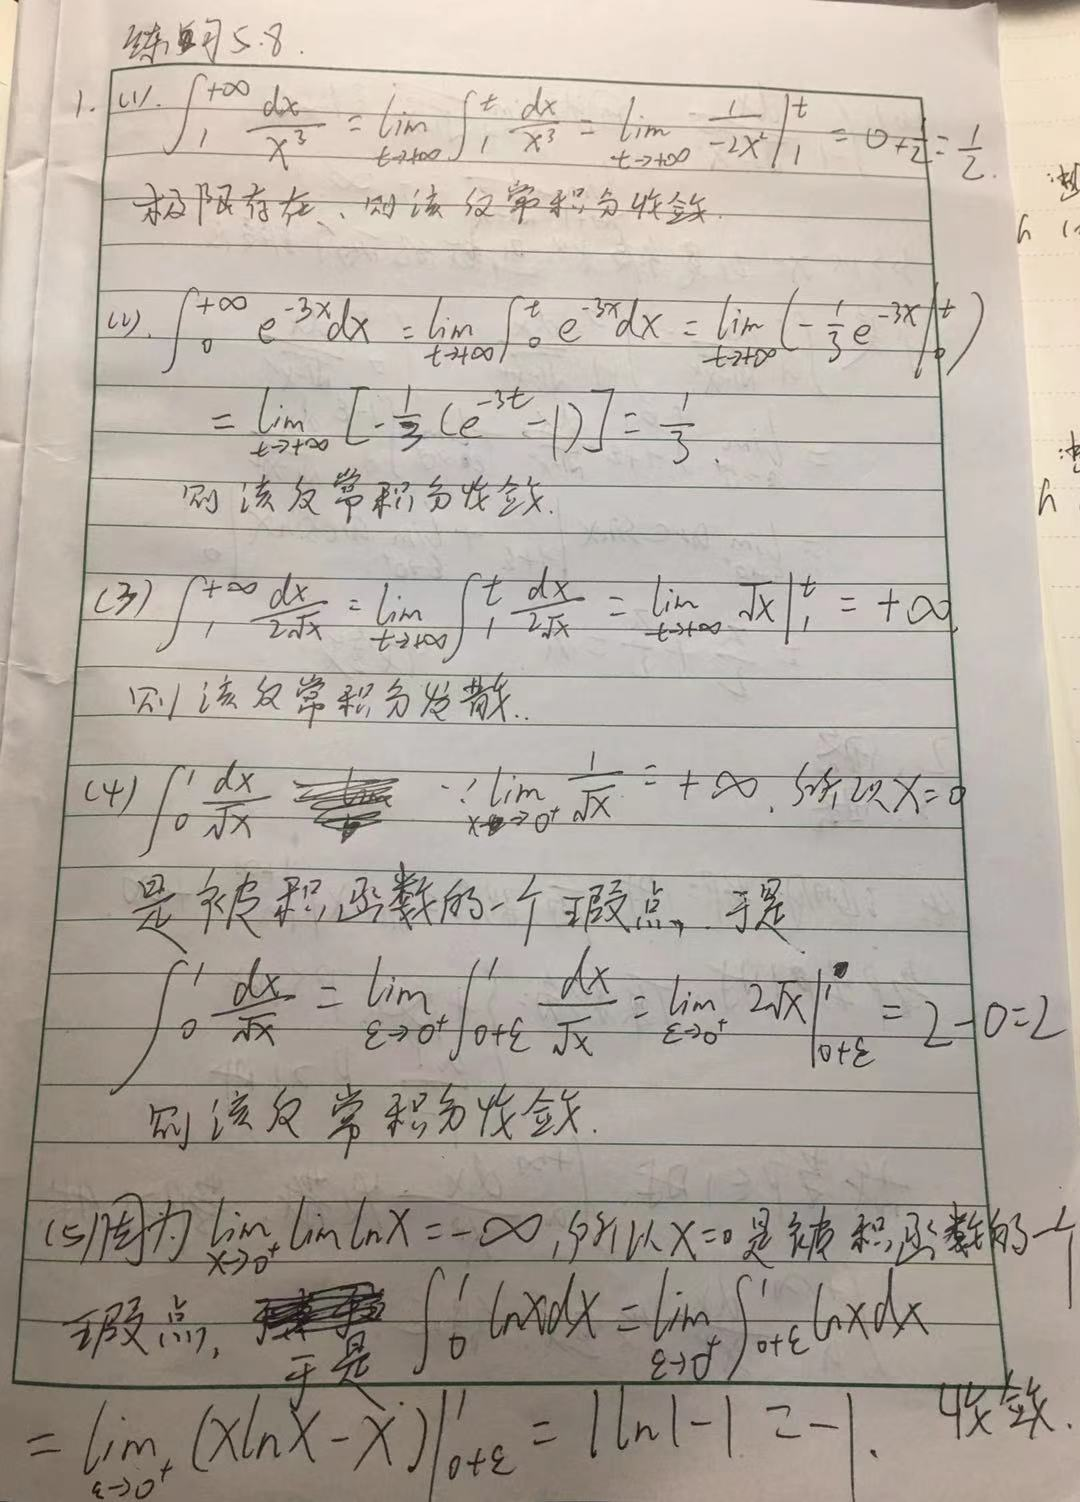 练习5.8.
1. (1). ∫₁^{+∞} dx/x³ = lim_{t→+∞} ∫₁^t dx/x³ = lim_{t→+∞} 1/(-2x²) |₁^t = 0+1/2 = 1/2.
极限存在、则该反常积分收敛.
(2). ∫₀^{+∞} e^{-3x}dx = lim_{t→+∞} ∫₀^t e^{-3x}dx = lim_{t→+∞} (-1/3 e^{-3x} |₀^t)
= lim_{t→+∞} [-1/3 (e^{-3t} -1)] = 1/3.
则该反常积分收敛.
(3) ∫₁^{+∞} dx/(2√x) = lim_{t→+∞} ∫₁^t dx/(2√x) = lim_{t→+∞} √x |₁^t = +∞.
则该反常积分发散..
(4) ∫₀^1 dx/√x ∵ lim_{x→0⁺} 1/√x = +∞. 所以x=0
是被积函数的一个瑕点,. 于是
∫₀^1 dx/√x = lim_{ε→0⁺} ∫_{0+ε}^1 dx/√x = lim_{ε→0⁺} 2√x |_{0+ε}^1 = 2-0=2
则该反常积分收敛.
(5)因为 lim_{x→0⁺} lim lnx = -∞, 所以x=0是被积函数的一个
瑕点, 于是 ∫₀^1 lnxdx = lim_{ε→0⁺} ∫_{0+ε}^1 lnxdx
= lim_{ε→0⁺} (xlnx-x) |_{0+ε}^1 = 1ln1-1 = -1. 收敛.